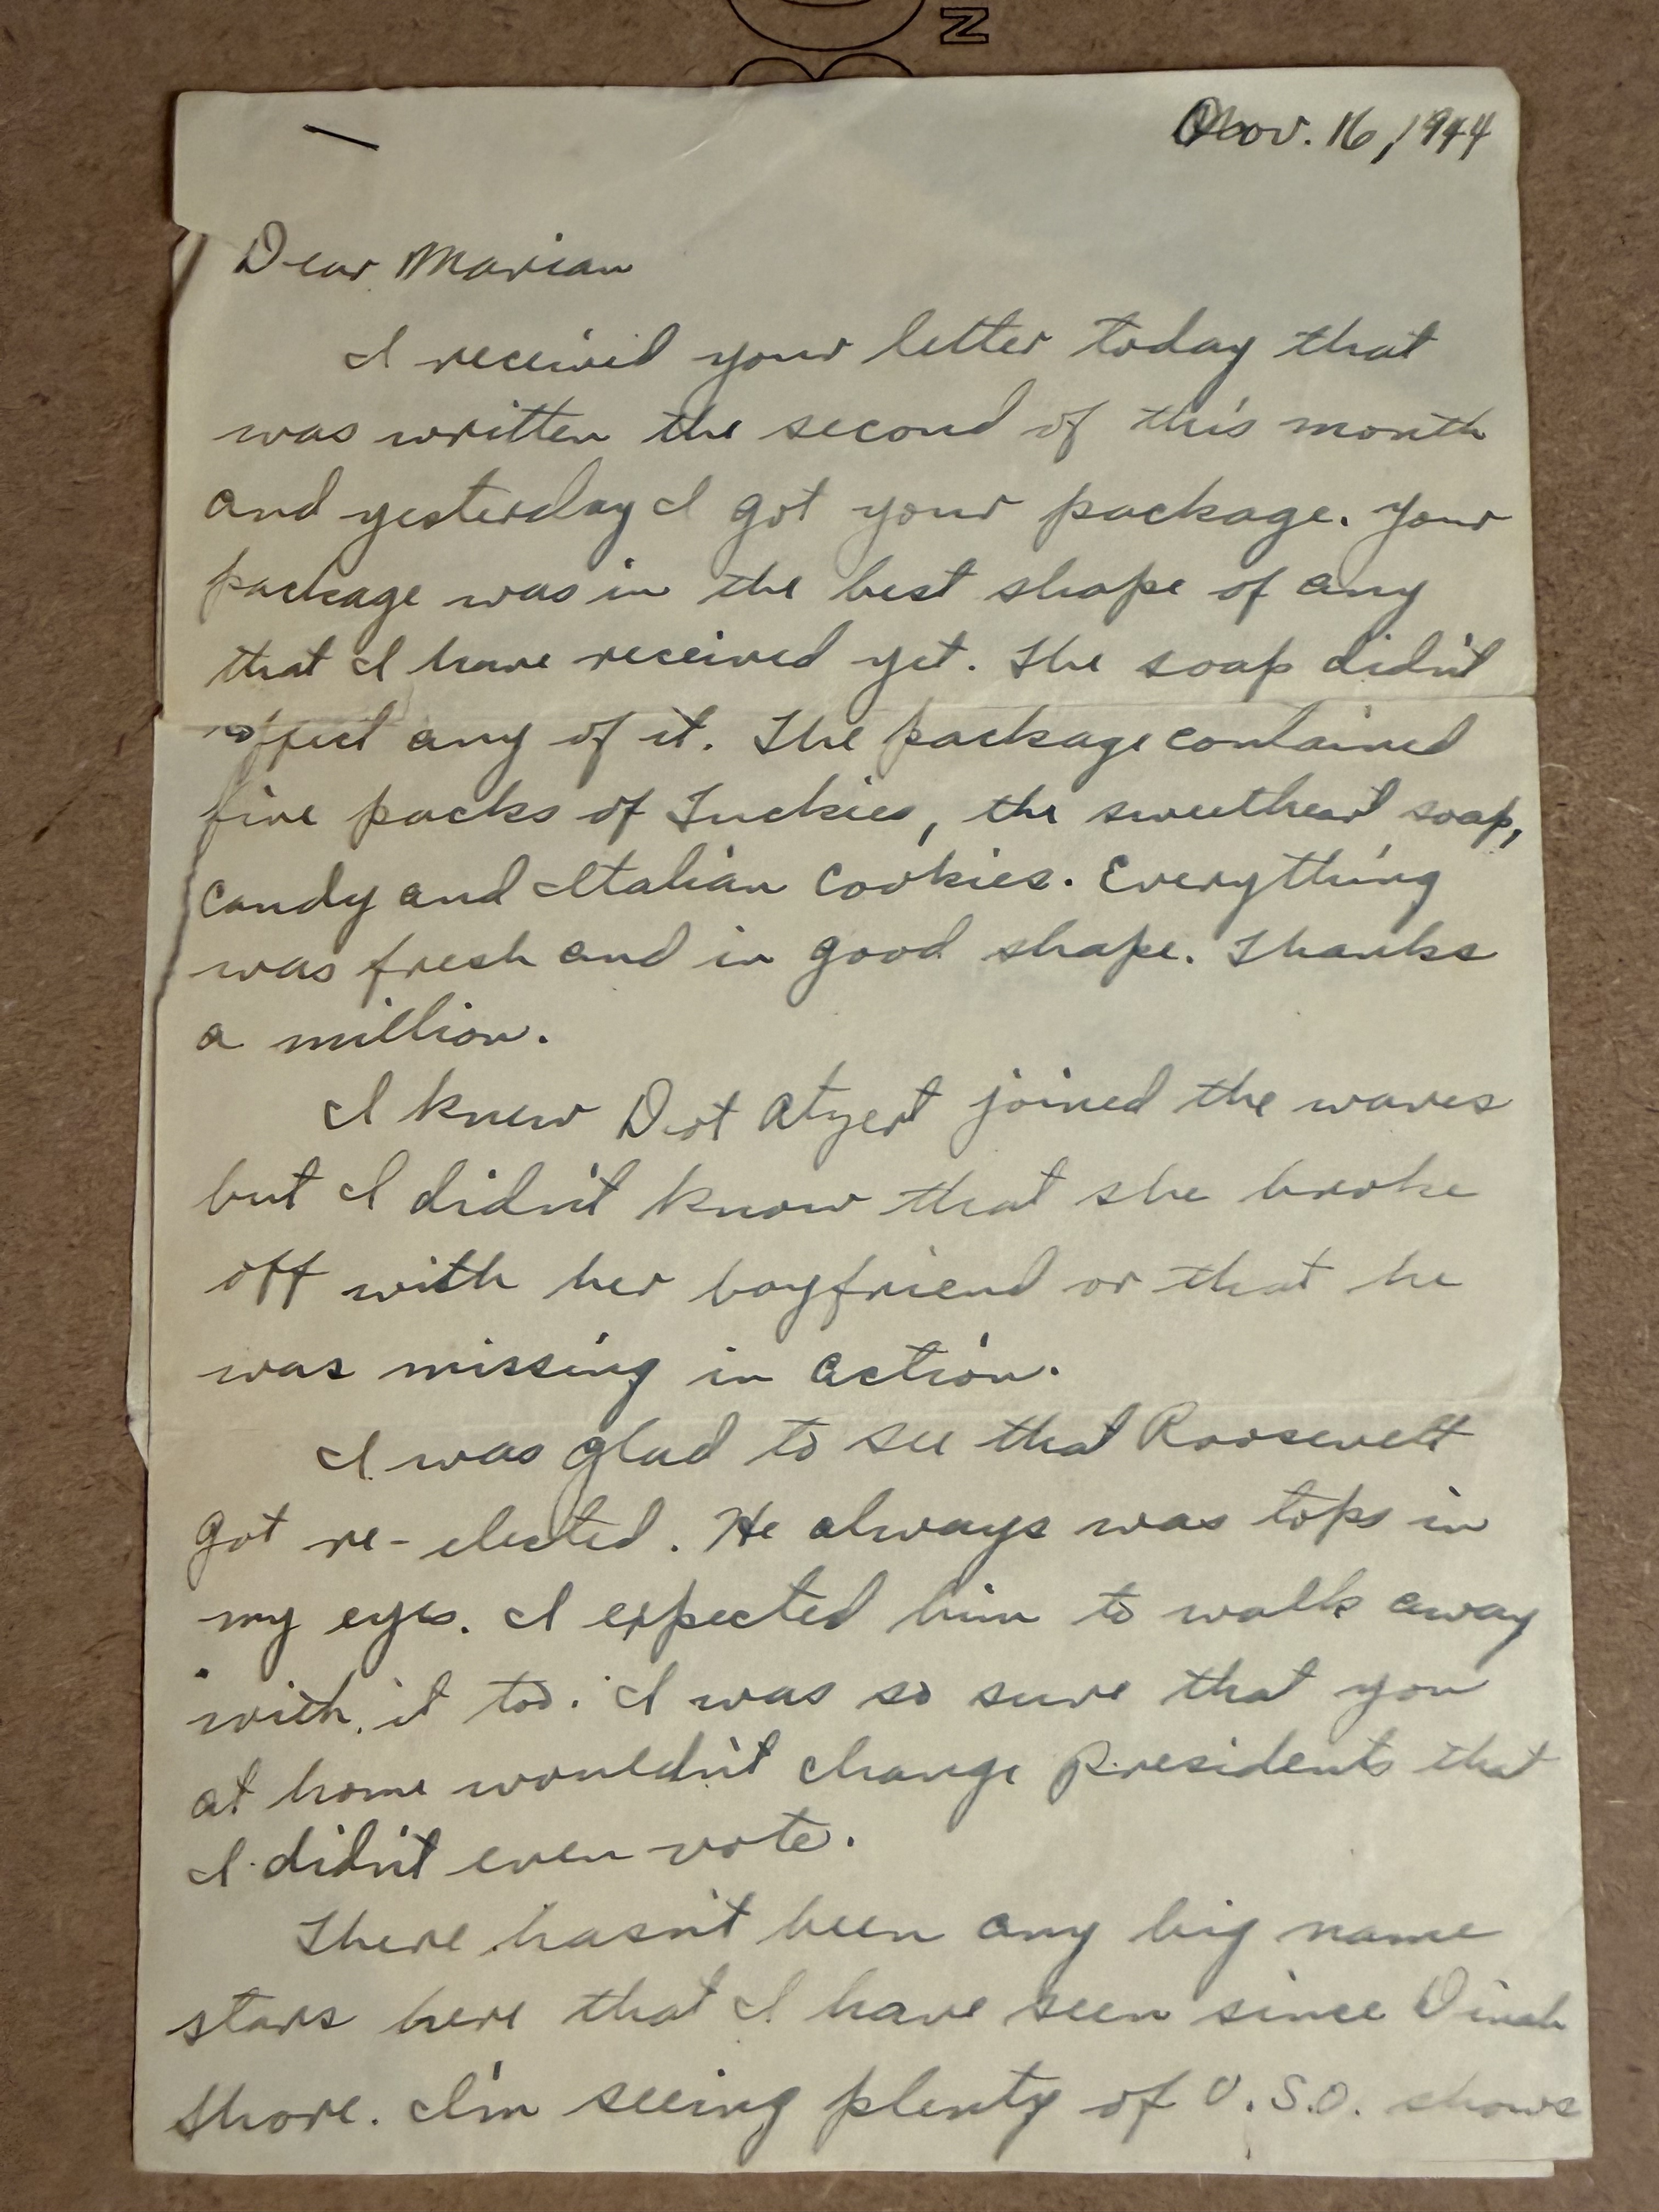 Nov. 16, 1944
Dear Marian
I received your letter today that
was written the second of this month
and yesterday I got your package. Your
package was in the best shape of any
that I have received yet. The soap didn't
effect any of it. The package contained
five packs of Luckies, the sweetheart soap,
candy and Italian cookies. Everything
was fresh and in good shape. Thanks
a million.
I knew Dot joined the waves
but I didn't know that she broke
off with her boyfriend or that he
was missing in action.
I was glad to see that Roosevelt
got re-elected. He always was tops in
my eyes. I expected him to walk away
with it too. I was so sure that you
at home wouldn't change Presidents that
I didn't even vote.
There hasn't been any big name
stars here that I have seen since Dinah
Shore. I'm seeing plenty of U.S.O. shows